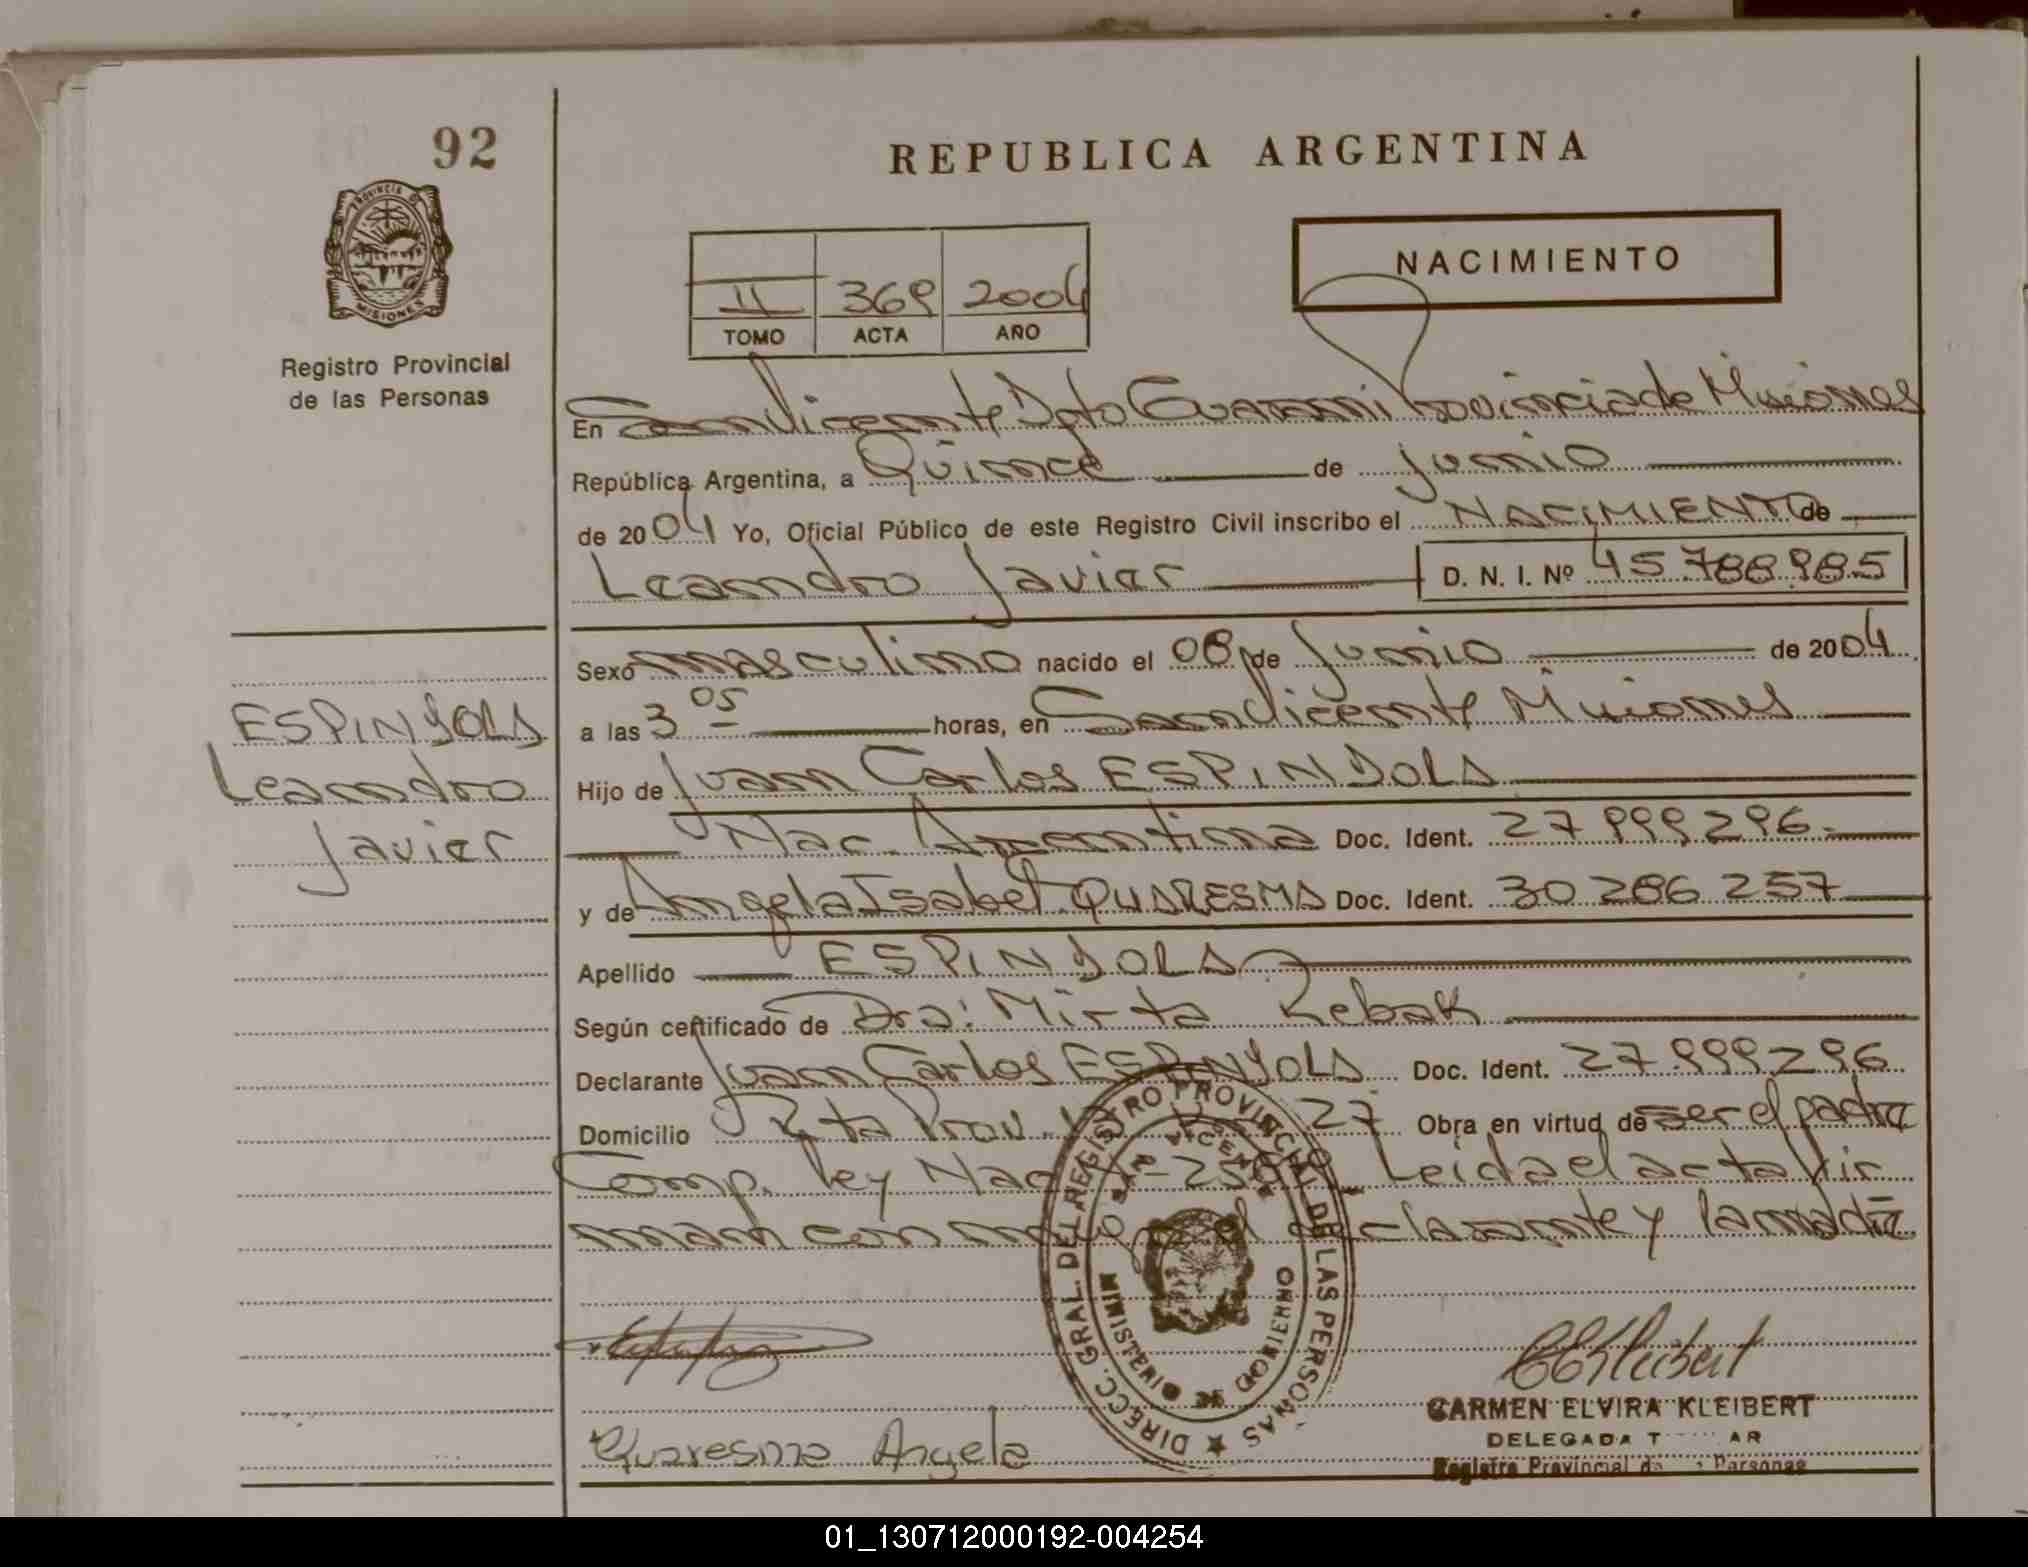 92
REPUBLICA ARGENTINA
PROVINCIA DE
MISIONES
Registro Provincial
de las Personas
NACIMIENTO
II 369 2004
TOMO ACTA AÑO
En San Vicente Dpto Guaraní Provincia de Misiones
República Argentina, a Quince de junio
de 2004 Yo, Oficial Público de este Registro Civil inscribo el NACIMIENTO de
Leandro Javier D. N. I. Nº 45788985
Sexo masculino nacido el 08 de Junio de 2004
a las 3 05 horas, en San Vicente Misiones
ESPINDOLA
Leandro
Javier
Hijo de Juan Carlos ESPINDOLA
Nac. Argentina Doc. Ident. 27 999 296
y de Angela Isabel QUARESMA Doc. Ident. 30 286 257
Apellido ESPINDOLA
Según certificado de Dra: Mirta Rebak
Declarante Juan Carlos ESPINDOLA Doc. Ident. 27 999 296
Domicilio Rta Prov. 27 Obra en virtud de ser el padre
Comp. ley Nac Leída el acta fir
man conmigo el declarante y la madre
DIRECC. GRAL. DEL REGISTRO PROVINCIAL DE LAS PERSONAS
SAN VICENTE
MINISTERIO DE GOBIERNO
CEKleibert
CARMEN ELVIRA KLEIBERT
DELEGADA
Registro Provincial de Personas
Quaresma Angela
01_130712000192-004254